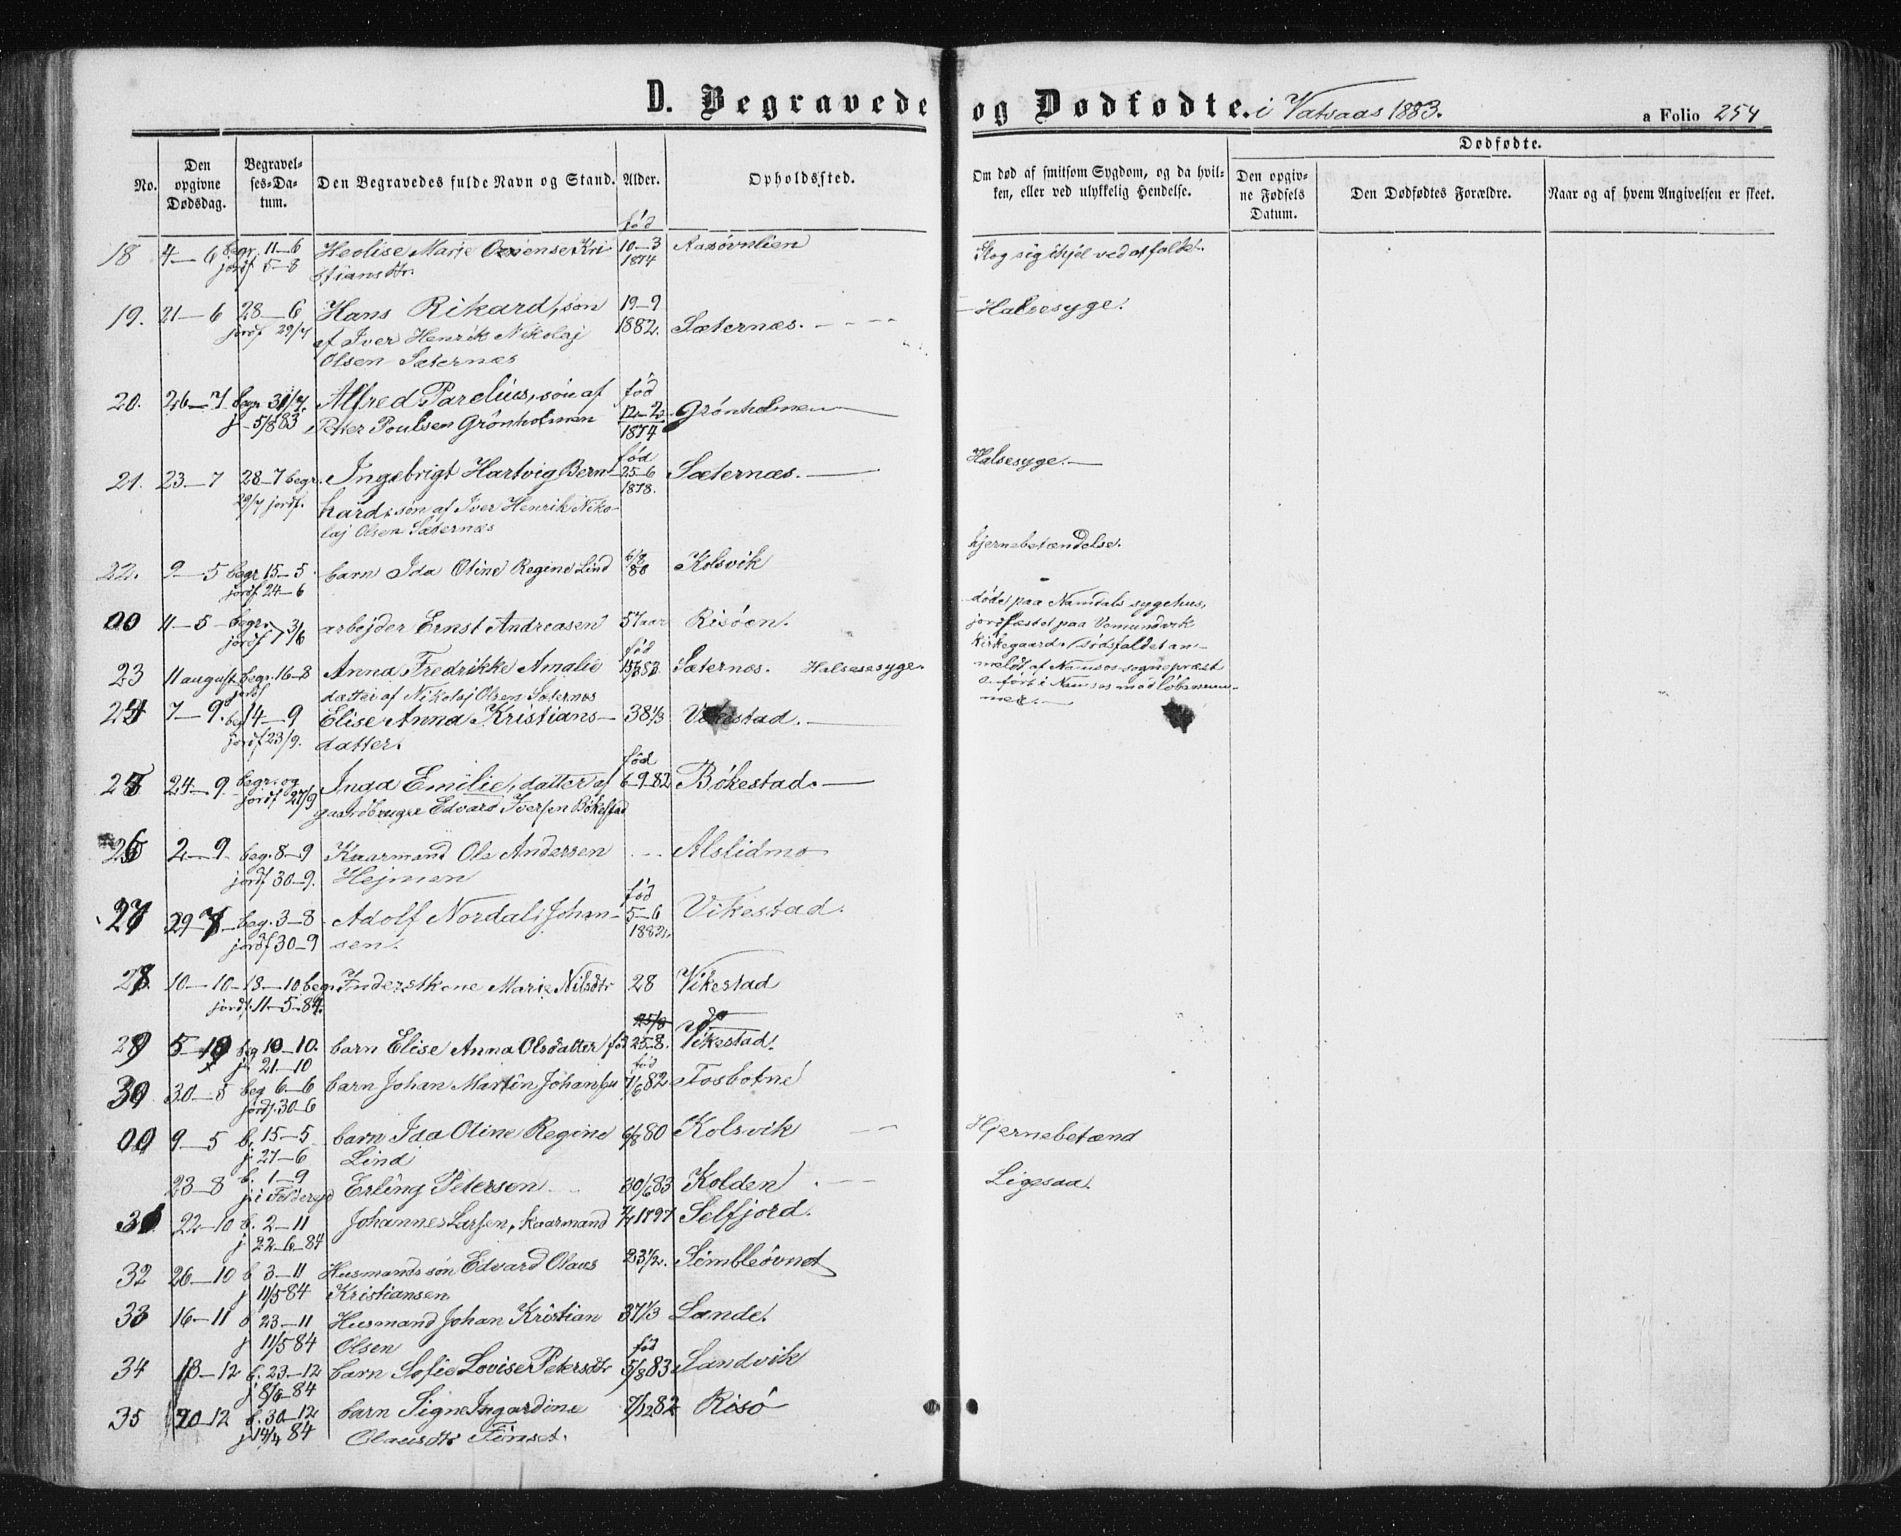 D. Begravede og Dødfødte. i Vatsaas 1883. a Folio 254
No.
Den opgivne Dødsdag.
Begravelses-Datum.
Den Begravedes fulde Navn og Stand.
Alder.
Opholdssted.
Om død af smitsom Sygdom, og da hvilken, eller ved ulykkelig Hendelse.
Dødfødte.
Den opgivne Fødsels Datum.
Den Dødfødtes Forældre.
Naar og af hvem Angivelsen er skeet.
18 4–6 begr. 11–6 Marie Kri- fød 10–3
jordf. 5–8 stiansdtr. 1874
Slog sig ihjel ved at falde.
19. 21–6 28–6 Hans Rikard, søn 19–9 Halsesyge.
jordf 29/7 af Iver Henrik Nikolaj 1882. Sæternæs.
Olsen Sæternæs
20. 26–7 begr 31/7. Alfred Parelius, søn af fød 12–2 Grønholmen
j. 5/8 83 Peter Poulsen Grønholmen 1874
21. 23–7 28–7 begr. Ingebrigt Hartvig Bern- fød 25–6 Sæternæs. Halsesyge.
29/7 jordf. hard, søn af Iver Henrik Niko- 1878.
laj Olsen Sæternæs
22. 9–5 begr 15–5 barn Ida Oline Regine Lind 6/8 80 Kolsvik hjernebetændelse.
jordf 24–6
00 11–5 begr. jordf 3/6 arbejder Ernst Andreasen 57 aar Risøen. døde paa Namdals sygehus,
jordfæstet paa Vemundvik
kirkegaard. dødsfaldet an-
meldt af Namsos sogneprest
anført i Namsos med løbenum-
mer.
23 11 august begr. 16–8 Anna Fredrikke Amalie fød Sæternæs. Halsesesyge.
jordf datter af Nikolaj Olsen Sæternæs
24 7–9. beg 14–9 Elise Anna Kristians- 38 1/3 Vikestad.
jordf 23/9. datter.
25 24–9 begr. og Inga Emilie, datter af fød 6–9–82 Bøkestad.
jordf 27/9 gaardbruger Edvard Iversen Bøkestad
26 2–9 beg. 8–9 Kaarmand Ole Andersen Alslidmo
jordf 30–9. Hejmen
27 29–7 beg. 3–8 Adolf Nordali Johan- fød 5–6 Vikestad.
jordf 30–9 sen. 1882.
28 10–10 13–10 beg. Inderstkone Marie Nilsdtr 28 Vikestad
jordf. 11–5–84.
29 5–10 beg 10–10. barn Elise Anna Olsdatter fød 25–8. Vikestad.
j. 21–10
30 30–5 beg 6–6 barn Johan Martin Johansen fød 1/6 82 Fosbotne
jordf. 30–6
00 9–5 b. 15–5 barn Ida Oline Regine 6/8 80 Kolsvik Hjernebetænd
j. 27–6 Lind
23–8 b. 1–9 Erling Petersen 30/6 83 Kolden Ligesaa.
j. i Foldereid
31 22–10 b. 2–11 Johannes Larsen, kaarmand 1797 Selfjord.
j. 22–6–84
32 26–10 b 3–11 Husmandssøn Edvard Olaus 23 1/2. Simbleøvnet
j 11/5 84 Kristiansen
33 16–11 b 23–11 Husmand Johan Kristian 37 1/3 Lande.
j 11/5 84 Olsen
34 13–12 b. 23–12 barn Sofie Lovise Petersdtr fød 5/8 83 Sandvik
j 8/6–84
35 20–12 b. 30–12 barn Signe Ingardine 7/12 82 Risø
j 14/4 84 Olausdtr Finset.